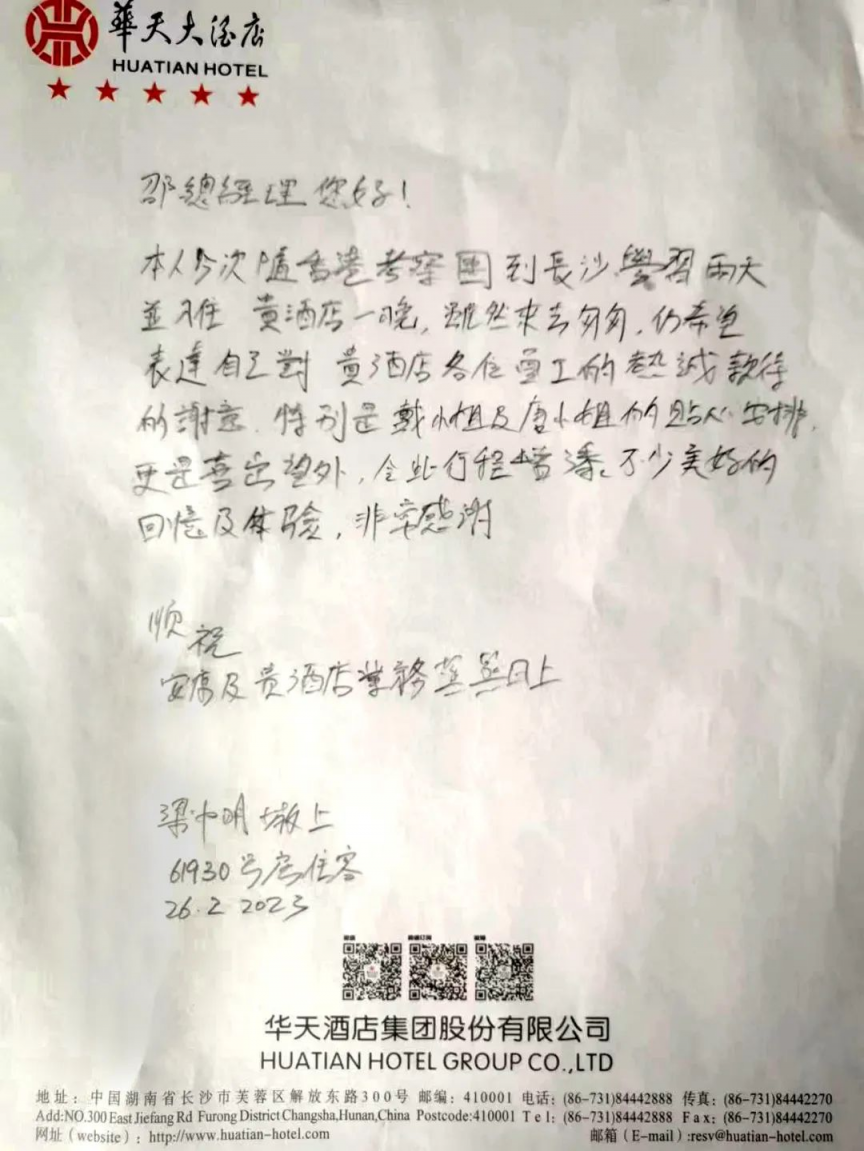 華天大酒店
HUATIAN HOTEL
邵總經理您好!
本人今次隨香港考察團到長沙學習兩天
並入住 貴酒店一晚,雖然來去匆匆,仍希望
表達自己對 貴酒店各位員工的熱誠款待
的謝意.特別是戴小姐及唐小姐的貼心安排,
更是喜出望外,令此行程增添不少美好的
回憶及体验,非常感谢
順祝
安康及貴酒店業務蒸蒸日上
梁 明 敬上
61930号房住客
26.2 2023
华天酒店集团股份有限公司
HUATIAN HOTEL GROUP CO.,LTD
地址:中国湖南省长沙市芙蓉区解放东路300号 邮编:410001 电话:(86-731)84442888 传真:(86-731)84442270
Add:NO.300 East Jiefang Rd Furong District Changsha,Hunan,China Postcode:410001 Tel:(86-731)84442888 Fax:(86-731)84442270
网址(website):http://www.huatian-hotel.com 邮箱(E-mail):resv@huatian-hotel.com